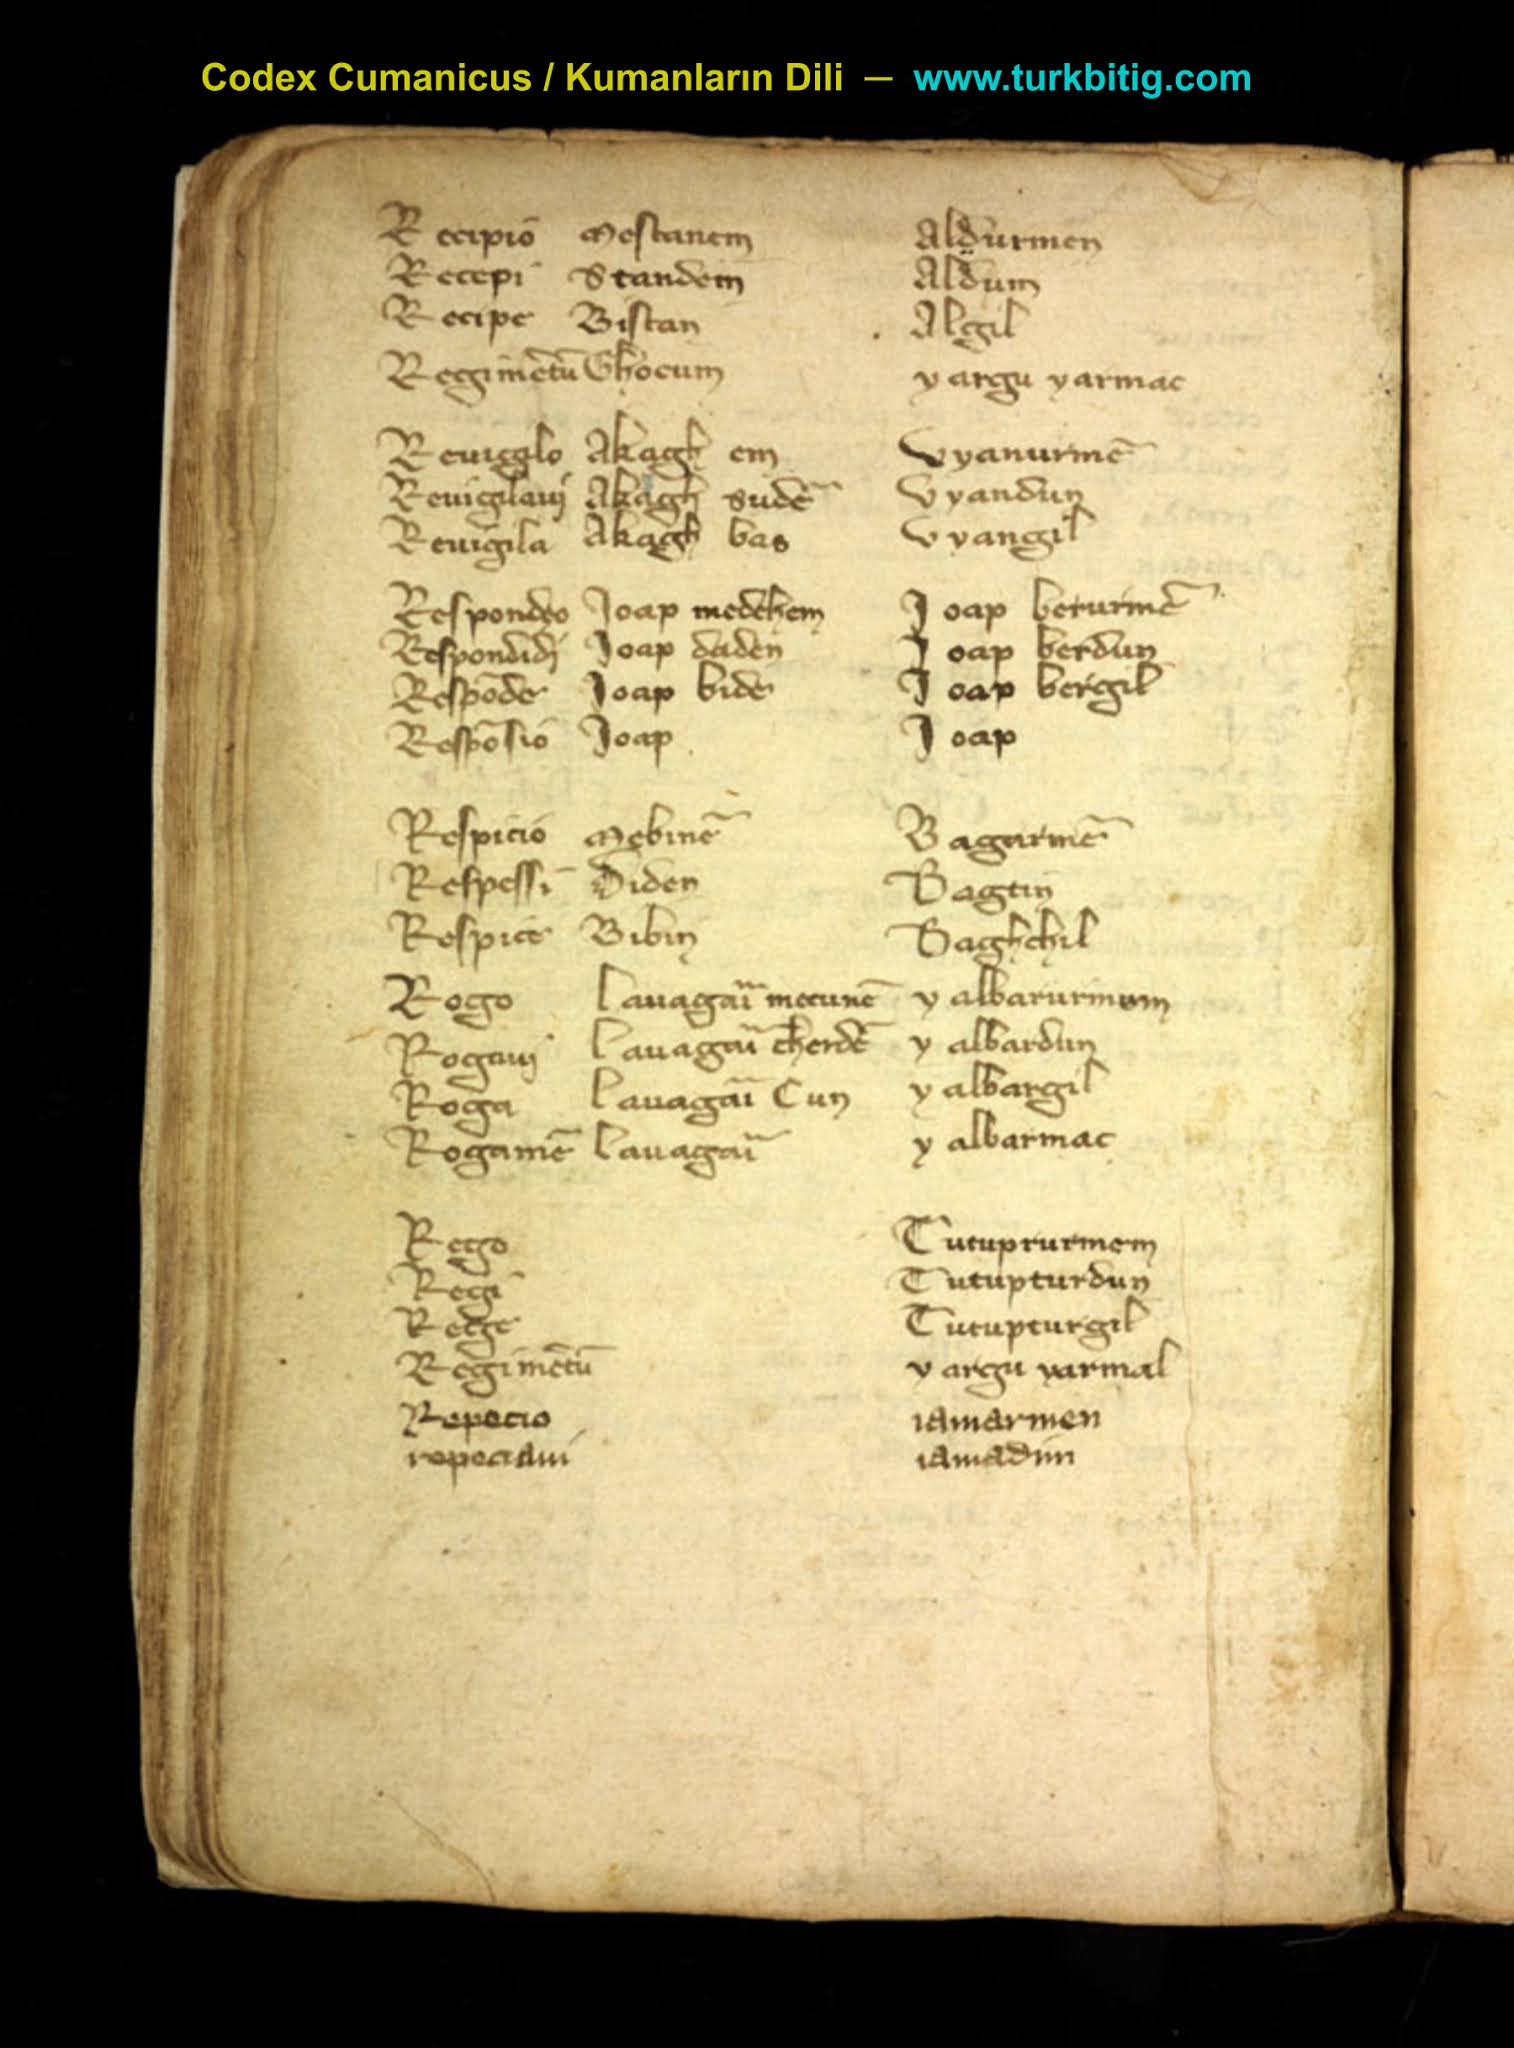 Codex Cumanicus / Kumanların Dili — www.turkbitig.com
Recipio mestanem Aldurmen
Recepi Standem Aldum
Recipe Bistan Algil
Regimẽtũ Ghocum yargu yarmac
Reuigilo Akagh em Vyanurmẽ
Reuigilaui Akagh sudẽ Vyandun
Reuigila Akagh bas Vyangil
Respondeo Joap medehem Joap berurmẽ
Respondidi Joap daden Joap berdun
Respõde Joap bide Joap bergil
Respõsio Joap Joap
Respicio mebinẽ Bagarmẽ
Respessi Diden Bagtin
Respice Bibin Baghchil
Rogo lauagaĩ mecunẽ yalbarurmum
Rogaui lauagaĩ cherdẽ yalbardun
Roga lauagaĩ Cun yalbargil
Rogamẽ lauagaĩ yalbarmac
Rego Tutuprurmem
Regi Tutupturdun
Rege Tutupturgil
Regimẽtũ yargu yarmal
Repecio iamarmen
repeciaui iamadim